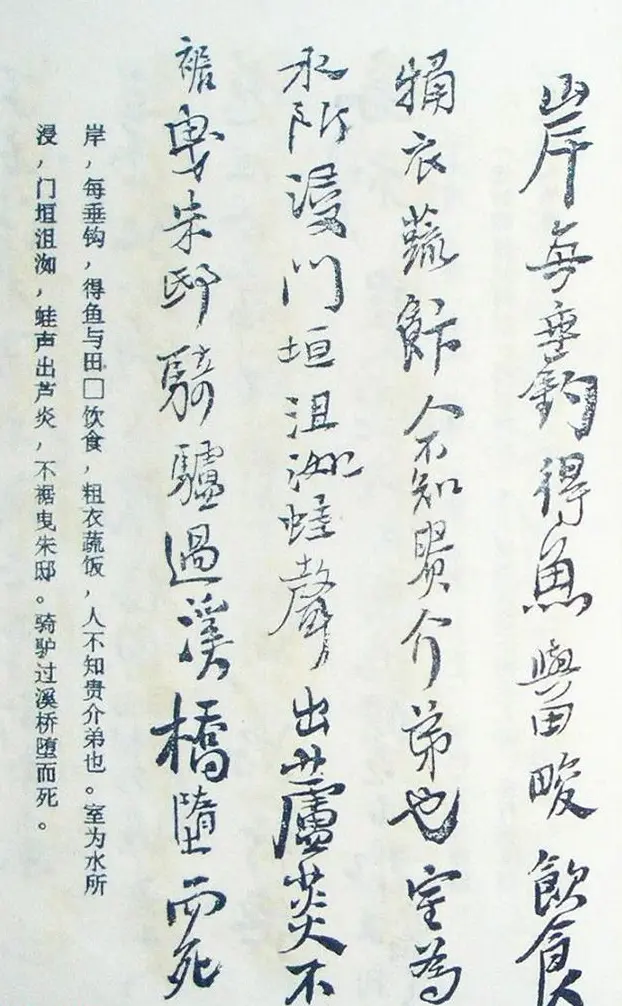 岸每垂钓得魚與田畯飲食
粗衣蔬飰人不知贵介弟也室為
水所浸門垣沮洳蛙聲出蘆荻不
裾曳朱邸騎驢過溪橋墮而死
岸，每垂钩，得鱼与田□饮食，粗衣蔬饭，人不知贵介弟也。室为水所
浸，门垣沮洳，蛙声出芦炎，不裾曳朱邸。骑驴过溪桥堕而死。